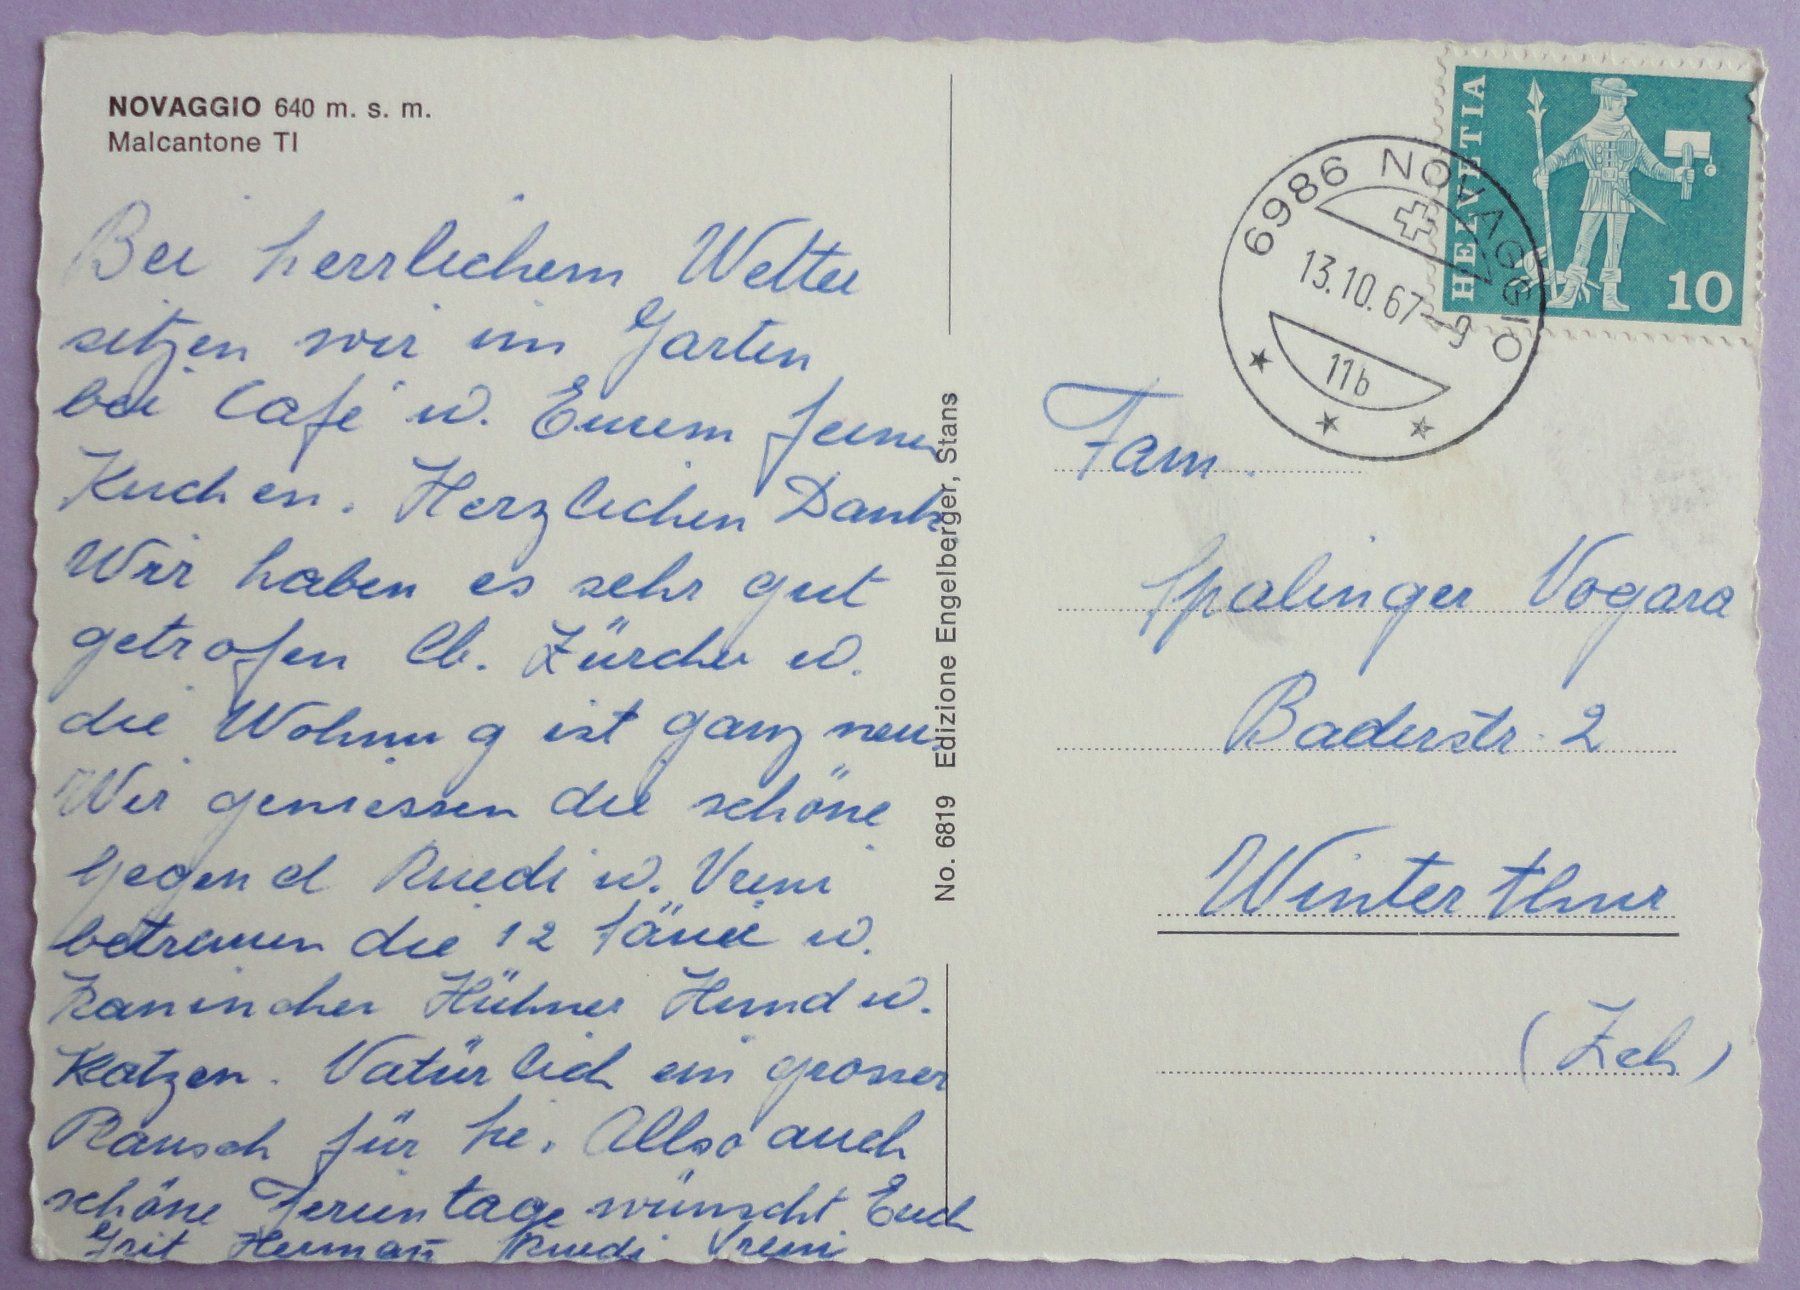 NOVAGGIO 640 m. s. m.
Malcantone TI
Bei herrlichem Wetter
sitzen wir im Garten
bei Café u. Eurem feinen
Kuchen. Herzlichen Dank
Wir haben es sehr gut
getrofen lb. Zürcher u.
die Wohnung ist ganz neu.
Wir geniessen die schöne
Gegend Ruedi u. Vreni
betrauen die 12 u.
Kaninchen Hühner Hund u.
Katzen. Natürlich ein grosser
Rausch für Sie. Allso auch
schöne Ferientage wünscht Euch
Grit Hermann Ruedi Vreni
No. 6819 Edizione Engelberger, Stans
HELVETIA
10
6986 NOVAGGIO
13.10.67-9
11b
Fam.
Spalinger Vogara
Baderstr. 2
Winterthur
(Zch)